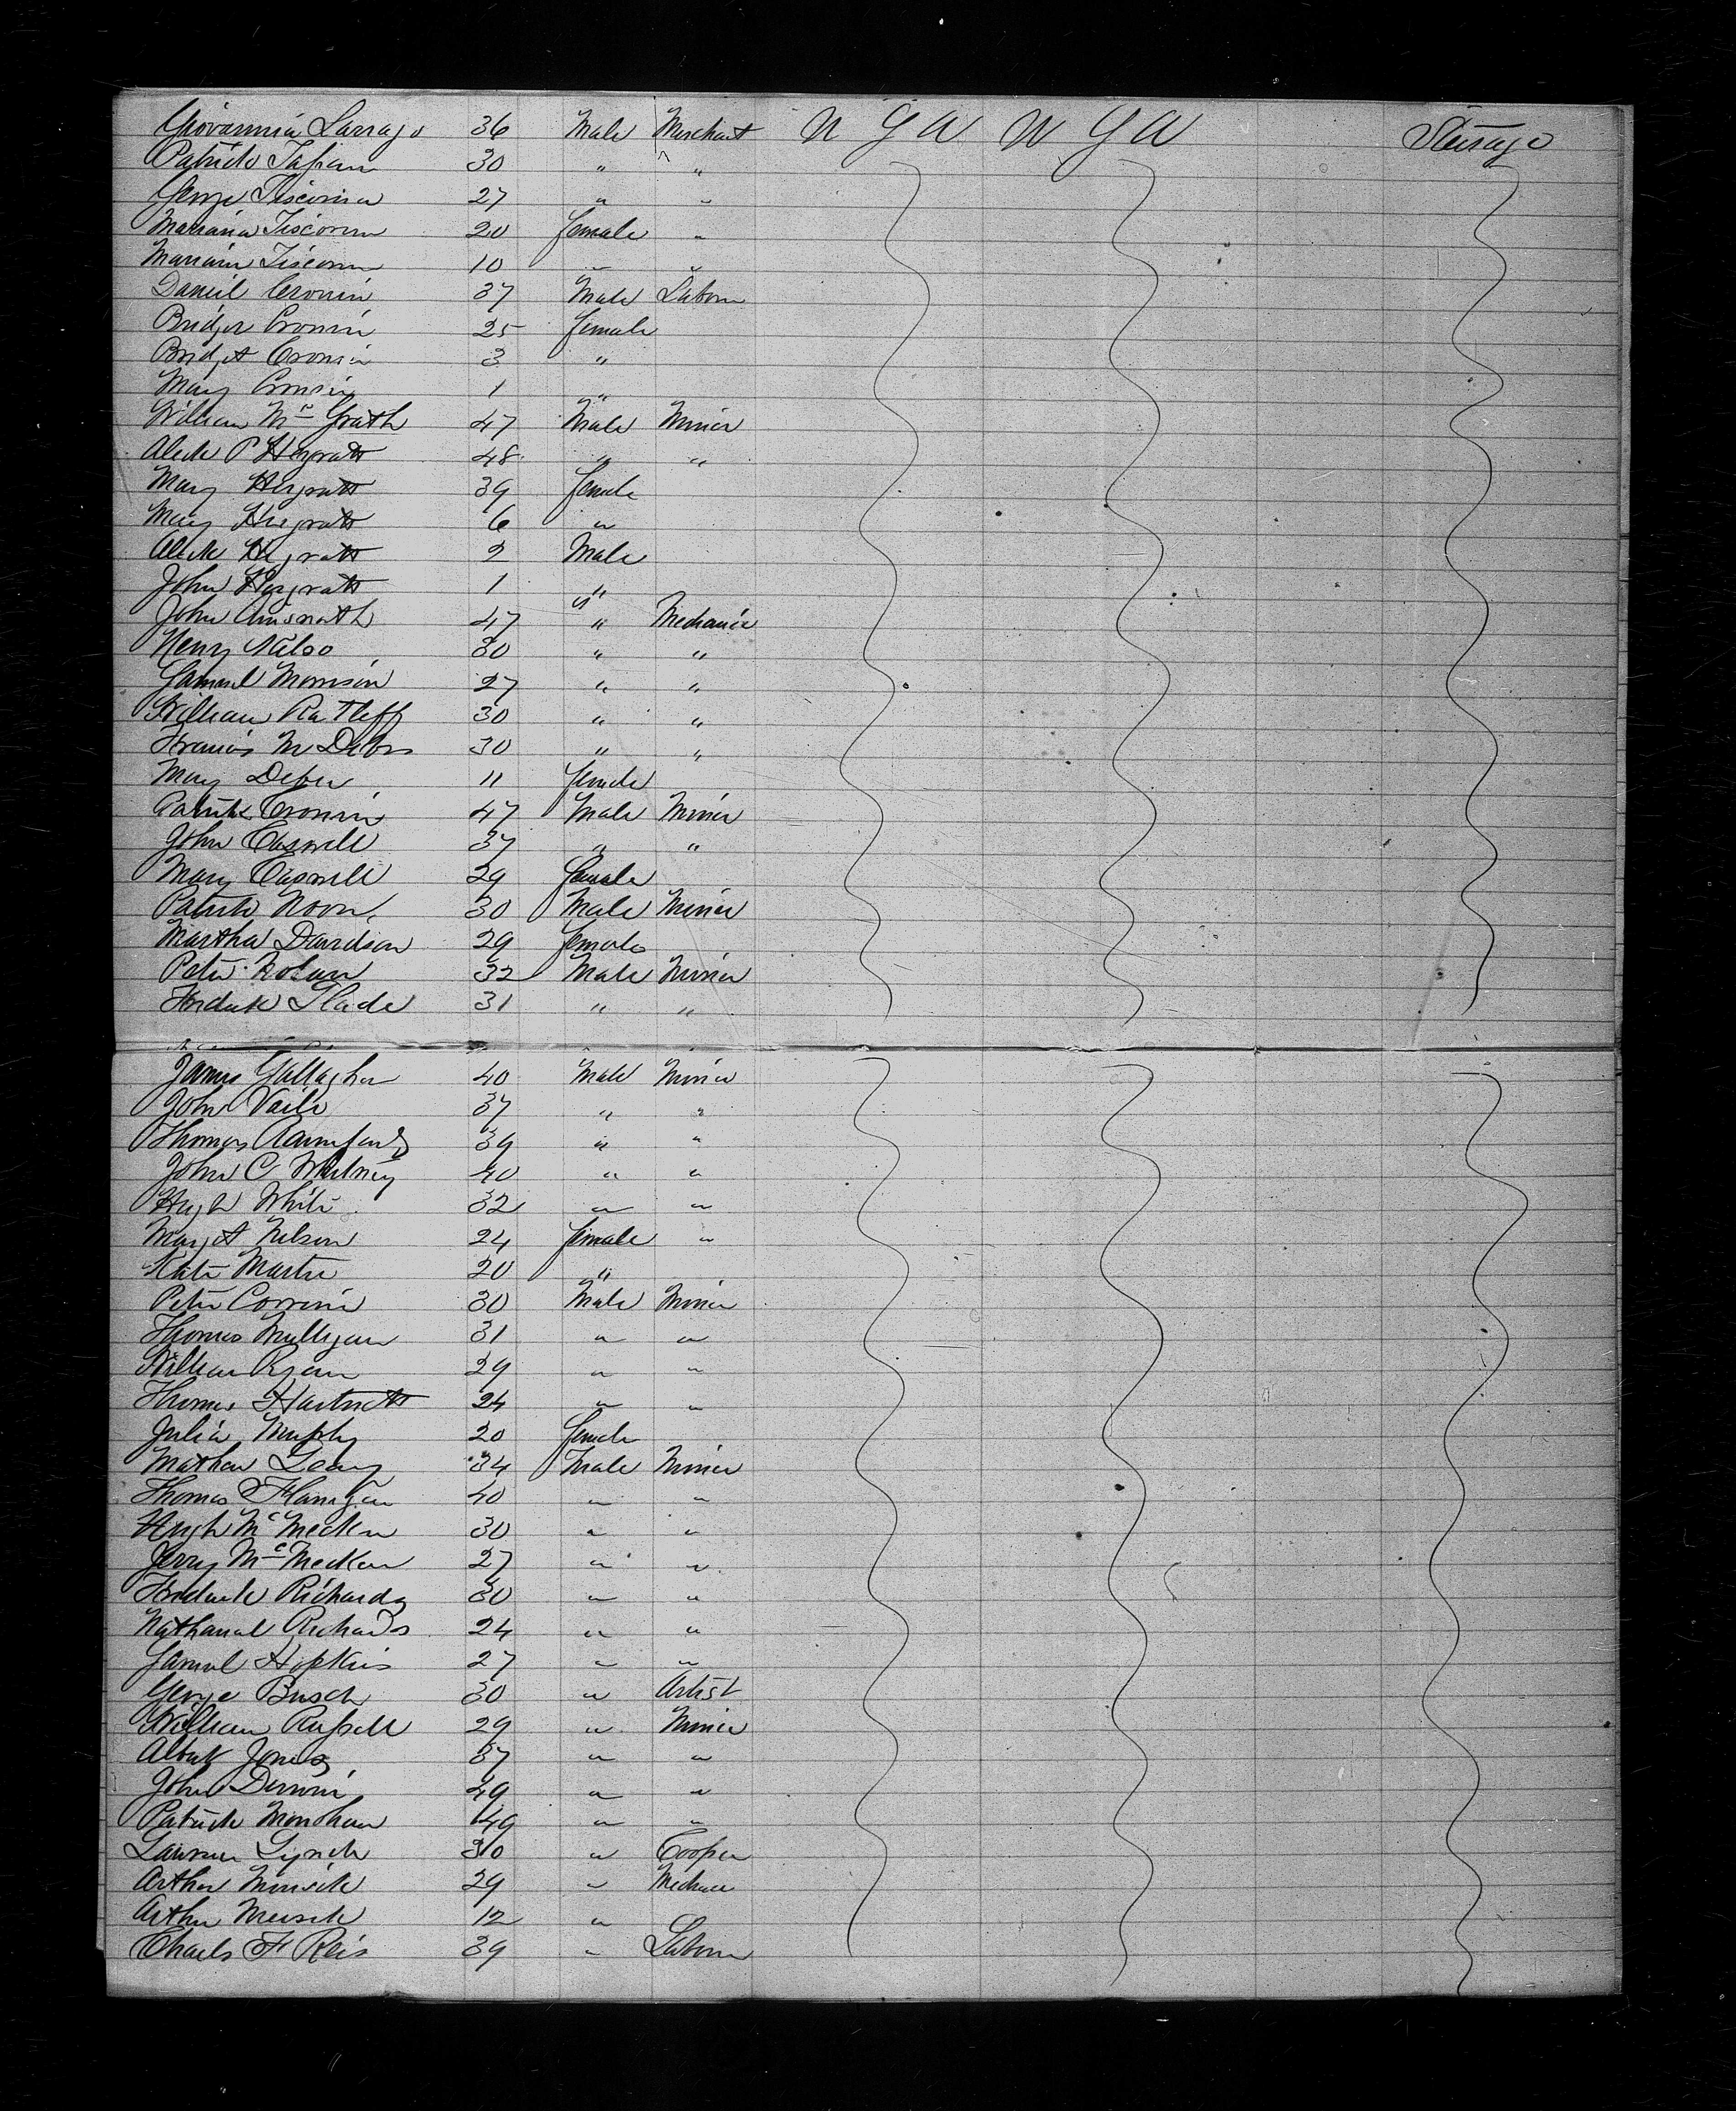 Giovannia Larrago 36 Male Merchant U S A U S A Steerage
Patrick 30 " "
George Tiscornia 27 " "
Mariana Tiscornia 20 female "
Mariana Tiscornia 10 " "
Daniel Cronin 37 Male Laborer
Bridget Cronin 25 female
Bridget Cronin 3 "
Mary Cronin 1 "
William Mc Grath 47 Male Miner
Aleck P 48 " "
Mary 39 female
Mary 6 "
Aleck 2 Male
John 1 "
John 47 " Mechanic
Henry 30 " "
Samuel Morrison 27 " "
William Ratleff 30 " "
Francis M 30 " "
Mary 11 female
Patrick Cronin 47 Male Miner
John Caswell 37 " "
Mary Caswell 29 female
Patrick 30 Male Miner
Martha Davidson 29 female
Peter Nolan 32 Male Miner
Fredrick Slade 31 " "
James Gallagher 40 Male Miner
John Vaile 37 " "
Thomas 39 " "
John C Whitney 40 " "
Hugh White 32 " "
Margt Nelson 24 female "
Kate Martin 20 "
Peter 30 Male Miner
Thomas Mulligan 31 " "
William Ryan 29 " "
Thomas Hartnett 24 " "
Julia Murphy 20 female
Mathew Leary 34 Male Miner
Thomas Flanigan 40 " "
Hugh Mc Mecken 30 " "
Jerry Mc Mecken 27 " "
Fredrick Richards 30 " "
Nathanal Richards 24 " "
Samuel Hopkins 27 " "
George Busch 30 " Artist
William Russell 29 " Miner
Albert Jones 37 " "
John 29 " "
Patrick Monohan 49 " "
Lawrence Lynch 30 " Cooper
Arthur 29 " Mechanic
Arthur 12 "
Charles F Reis 39 " Laborer